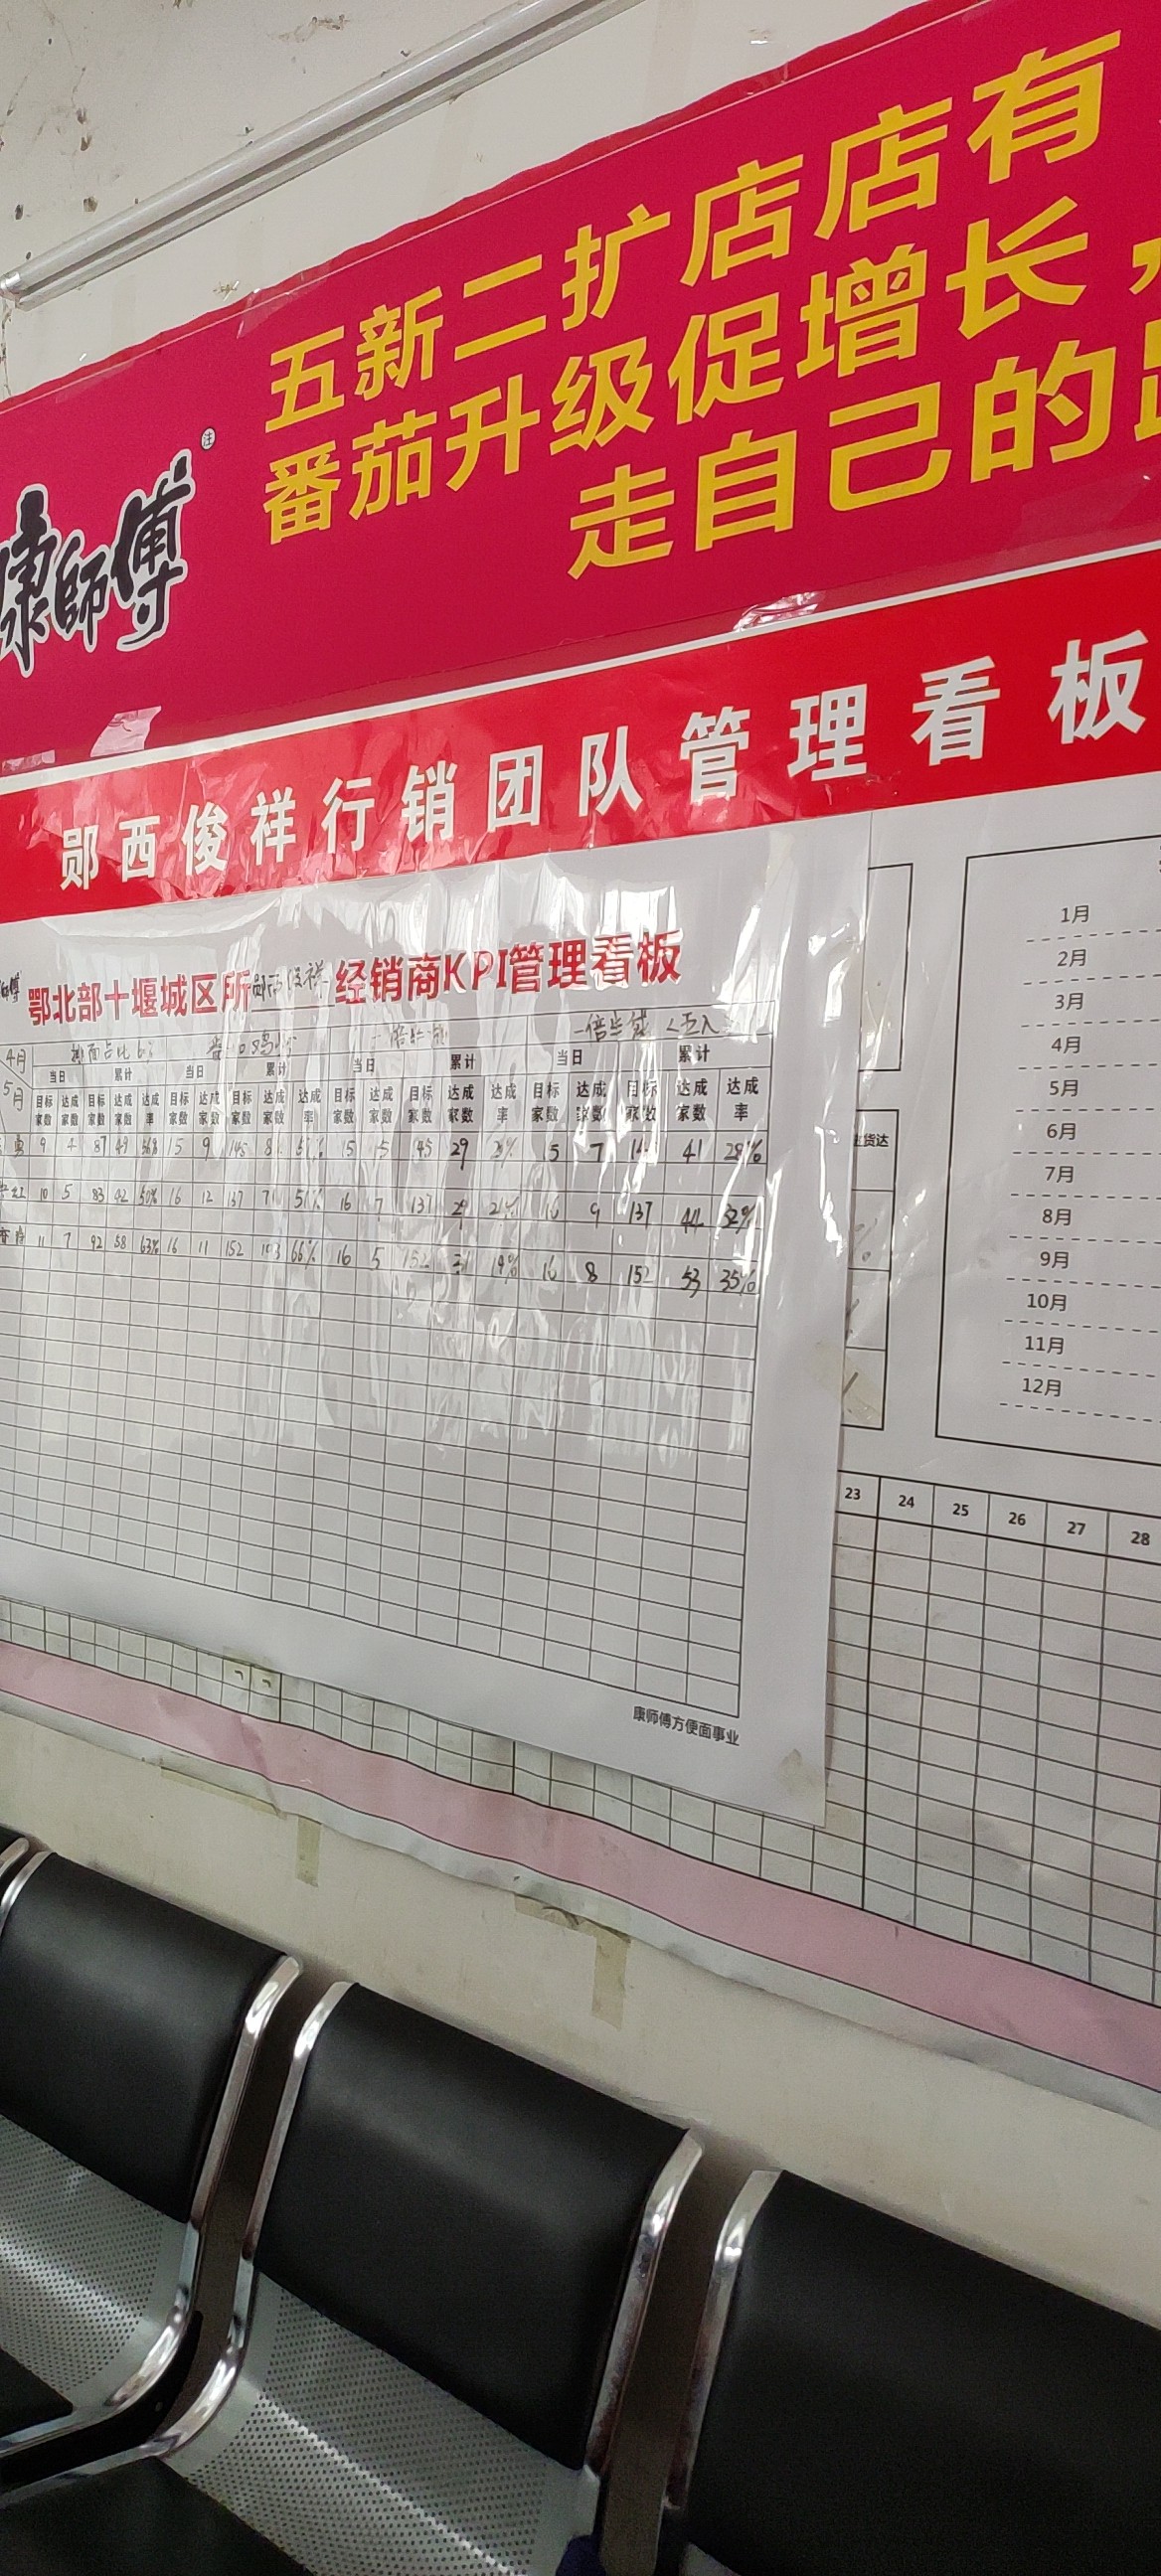 五新二扩店店有
番茄升级促增长，
走自己的
康師傅
郧西俊祥行销团队管理看板
鄂北部十堰城区所 郧西俊祥 经销商KPI管理看板
4月
5月
当日 累计 当日 累计 当日 累计 当日 累计
目标家数 达成家数 目标家数 达成家数 达成率 目标家数 达成家数 目标家数 达成家数 达成率 目标家数 达成家数 目标家数 达成家数 达成率 目标家数 达成家数 目标家数 达成家数 达成率
9 4 87 49 15 9 145 15 15 29 15 7 41 28%
10 5 83 42 50% 16 12 137 51% 16 7 137 29 21% 16 9 137 44 32%
11 7 92 58 63% 16 11 152 103 66% 16 5 152 31 19% 16 8 152 53 35%
康师傅方便面事业
货达
1月
2月
3月
4月
5月
6月
7月
8月
9月
10月
11月
12月
23 24 25 26 27 28